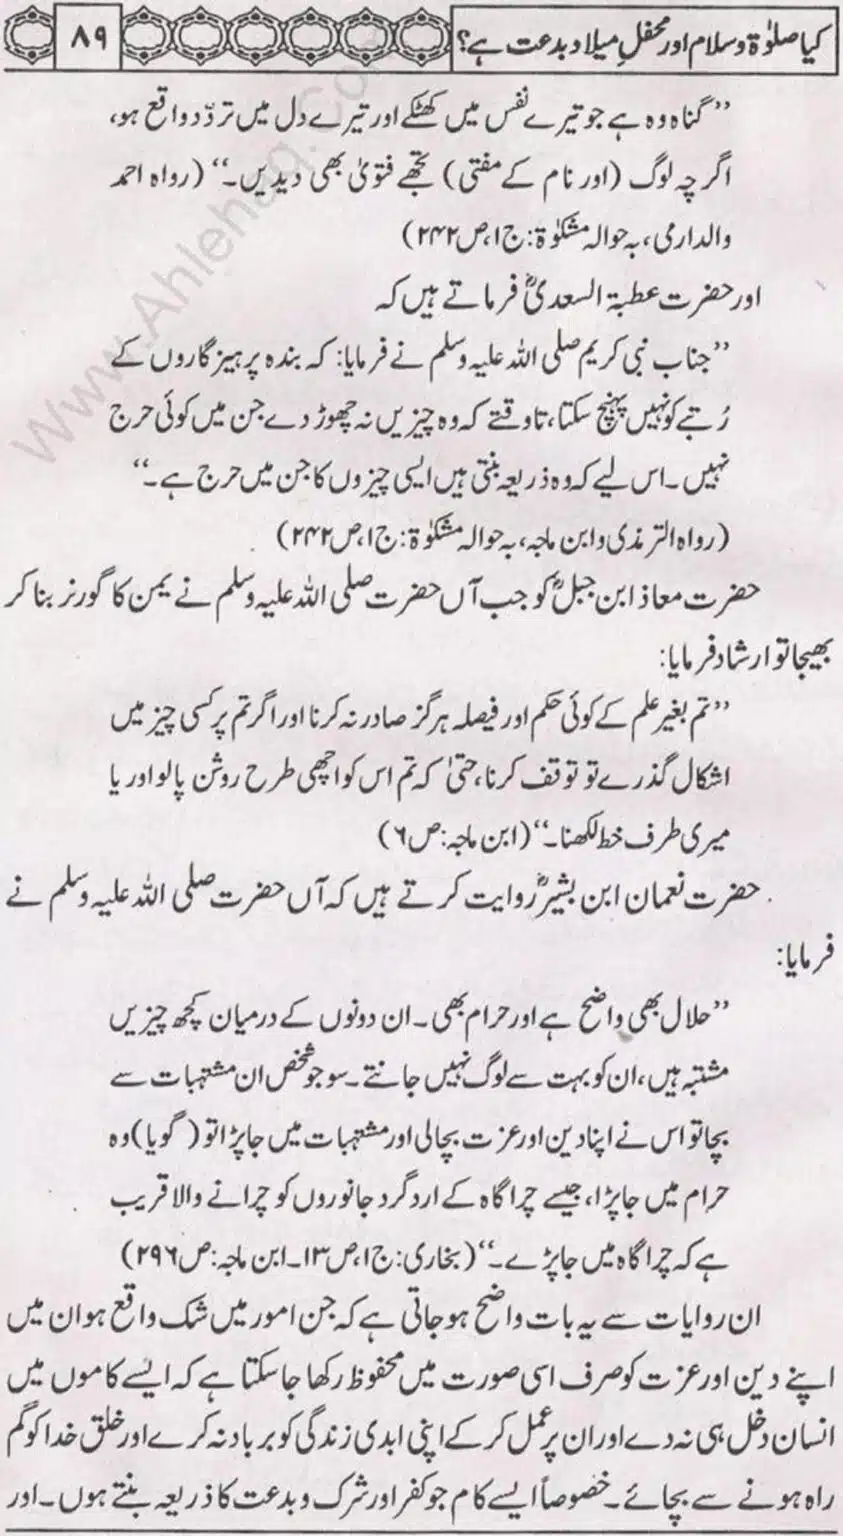 کیا صلوٰۃ و سلام اور محفلِ میلاد بدعت ہے؟
۸۹
”گناہ وہ ہے جو تیرے نفس میں کھٹکے اور تیرے دل میں تردّد واقع ہو،
اگرچہ لوگ (اور نام کے مفتی) تجھے فتویٰ بھی دیدیں۔“ (رواہ احمد
والدارمی، بہ حوالہ مشکوٰۃ: ج۱، ص۲۴۲)
اور حضرت عطبۃ السعدیؓ فرماتے ہیں کہ
”جناب نبی کریم صلی اللہ علیہ وسلم نے فرمایا: کہ بندہ پرہیزگاروں کے
رُتبے کو نہیں پہنچ سکتا، تاوقتے کہ وہ چیزیں نہ چھوڑ دے جن میں کوئی حرج
نہیں۔ اس لیے کہ وہ ذریعہ بنتی ہیں ایسی چیزوں کا جن میں حرج ہے۔“
(رواہ الترمذی و ابن ماجہ، بہ حوالہ مشکوٰۃ: ج۱، ص۲۴۲)
حضرت معاذ ابن جبلؓ کو جب آں حضرت صلی اللہ علیہ وسلم نے یمن کا گورنر بنا کر
بھیجا تو ارشاد فرمایا:
”تم بغیر علم کے کوئی حکم اور فیصلہ ہرگز صادر نہ کرنا اور اگر تم پر کسی چیز میں
اشکال گذرے تو توقف کرنا، حتیٰ کہ تم اس کو اچھی طرح روشن پالو اور یا
میری طرف خط لکھنا۔“ (ابن ماجہ: ص۶)
حضرت نعمان ابن بشیرؓ روایت کرتے ہیں کہ آں حضرت صلی اللہ علیہ وسلم نے
فرمایا:
”حلال بھی واضح ہے اور حرام بھی۔ ان دونوں کے درمیان کچھ چیزیں
مشتبہ ہیں، ان کو بہت سے لوگ نہیں جانتے۔ سو جو شخص ان مشتبہات سے
بچا تو اس نے اپنا دین اور عزت بچالی اور مشتبہات میں جاپڑا تو (گویا) وہ
حرام میں جاپڑا، جیسے چراگاہ کے اردگرد جانوروں کو چرانے والا قریب
ہے کہ چراگاہ میں جاپڑے۔“ (بخاری: ج۱، ص۱۳۔ ابن ماجہ: ص۲۹۶)
ان روایات سے یہ بات واضح ہوجاتی ہے کہ جن امور میں شک واقع ہو ان میں
اپنے دین اور عزت کو صرف اسی صورت میں محفوظ رکھا جاسکتا ہے کہ ایسے کاموں میں
انسان دخل ہی نہ دے اور ان پر عمل کرکے اپنی ابدی زندگی کو برباد نہ کرے اور خلق خدا کو گم
راہ ہونے سے بچائے۔ خصوصاً ایسے کام جو کفر اور شرک و بدعت کا ذریعہ بنتے ہوں۔ اور